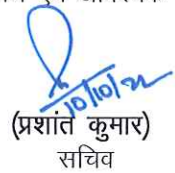 10/10/22
(प्रशांत कुमार)
सचिव